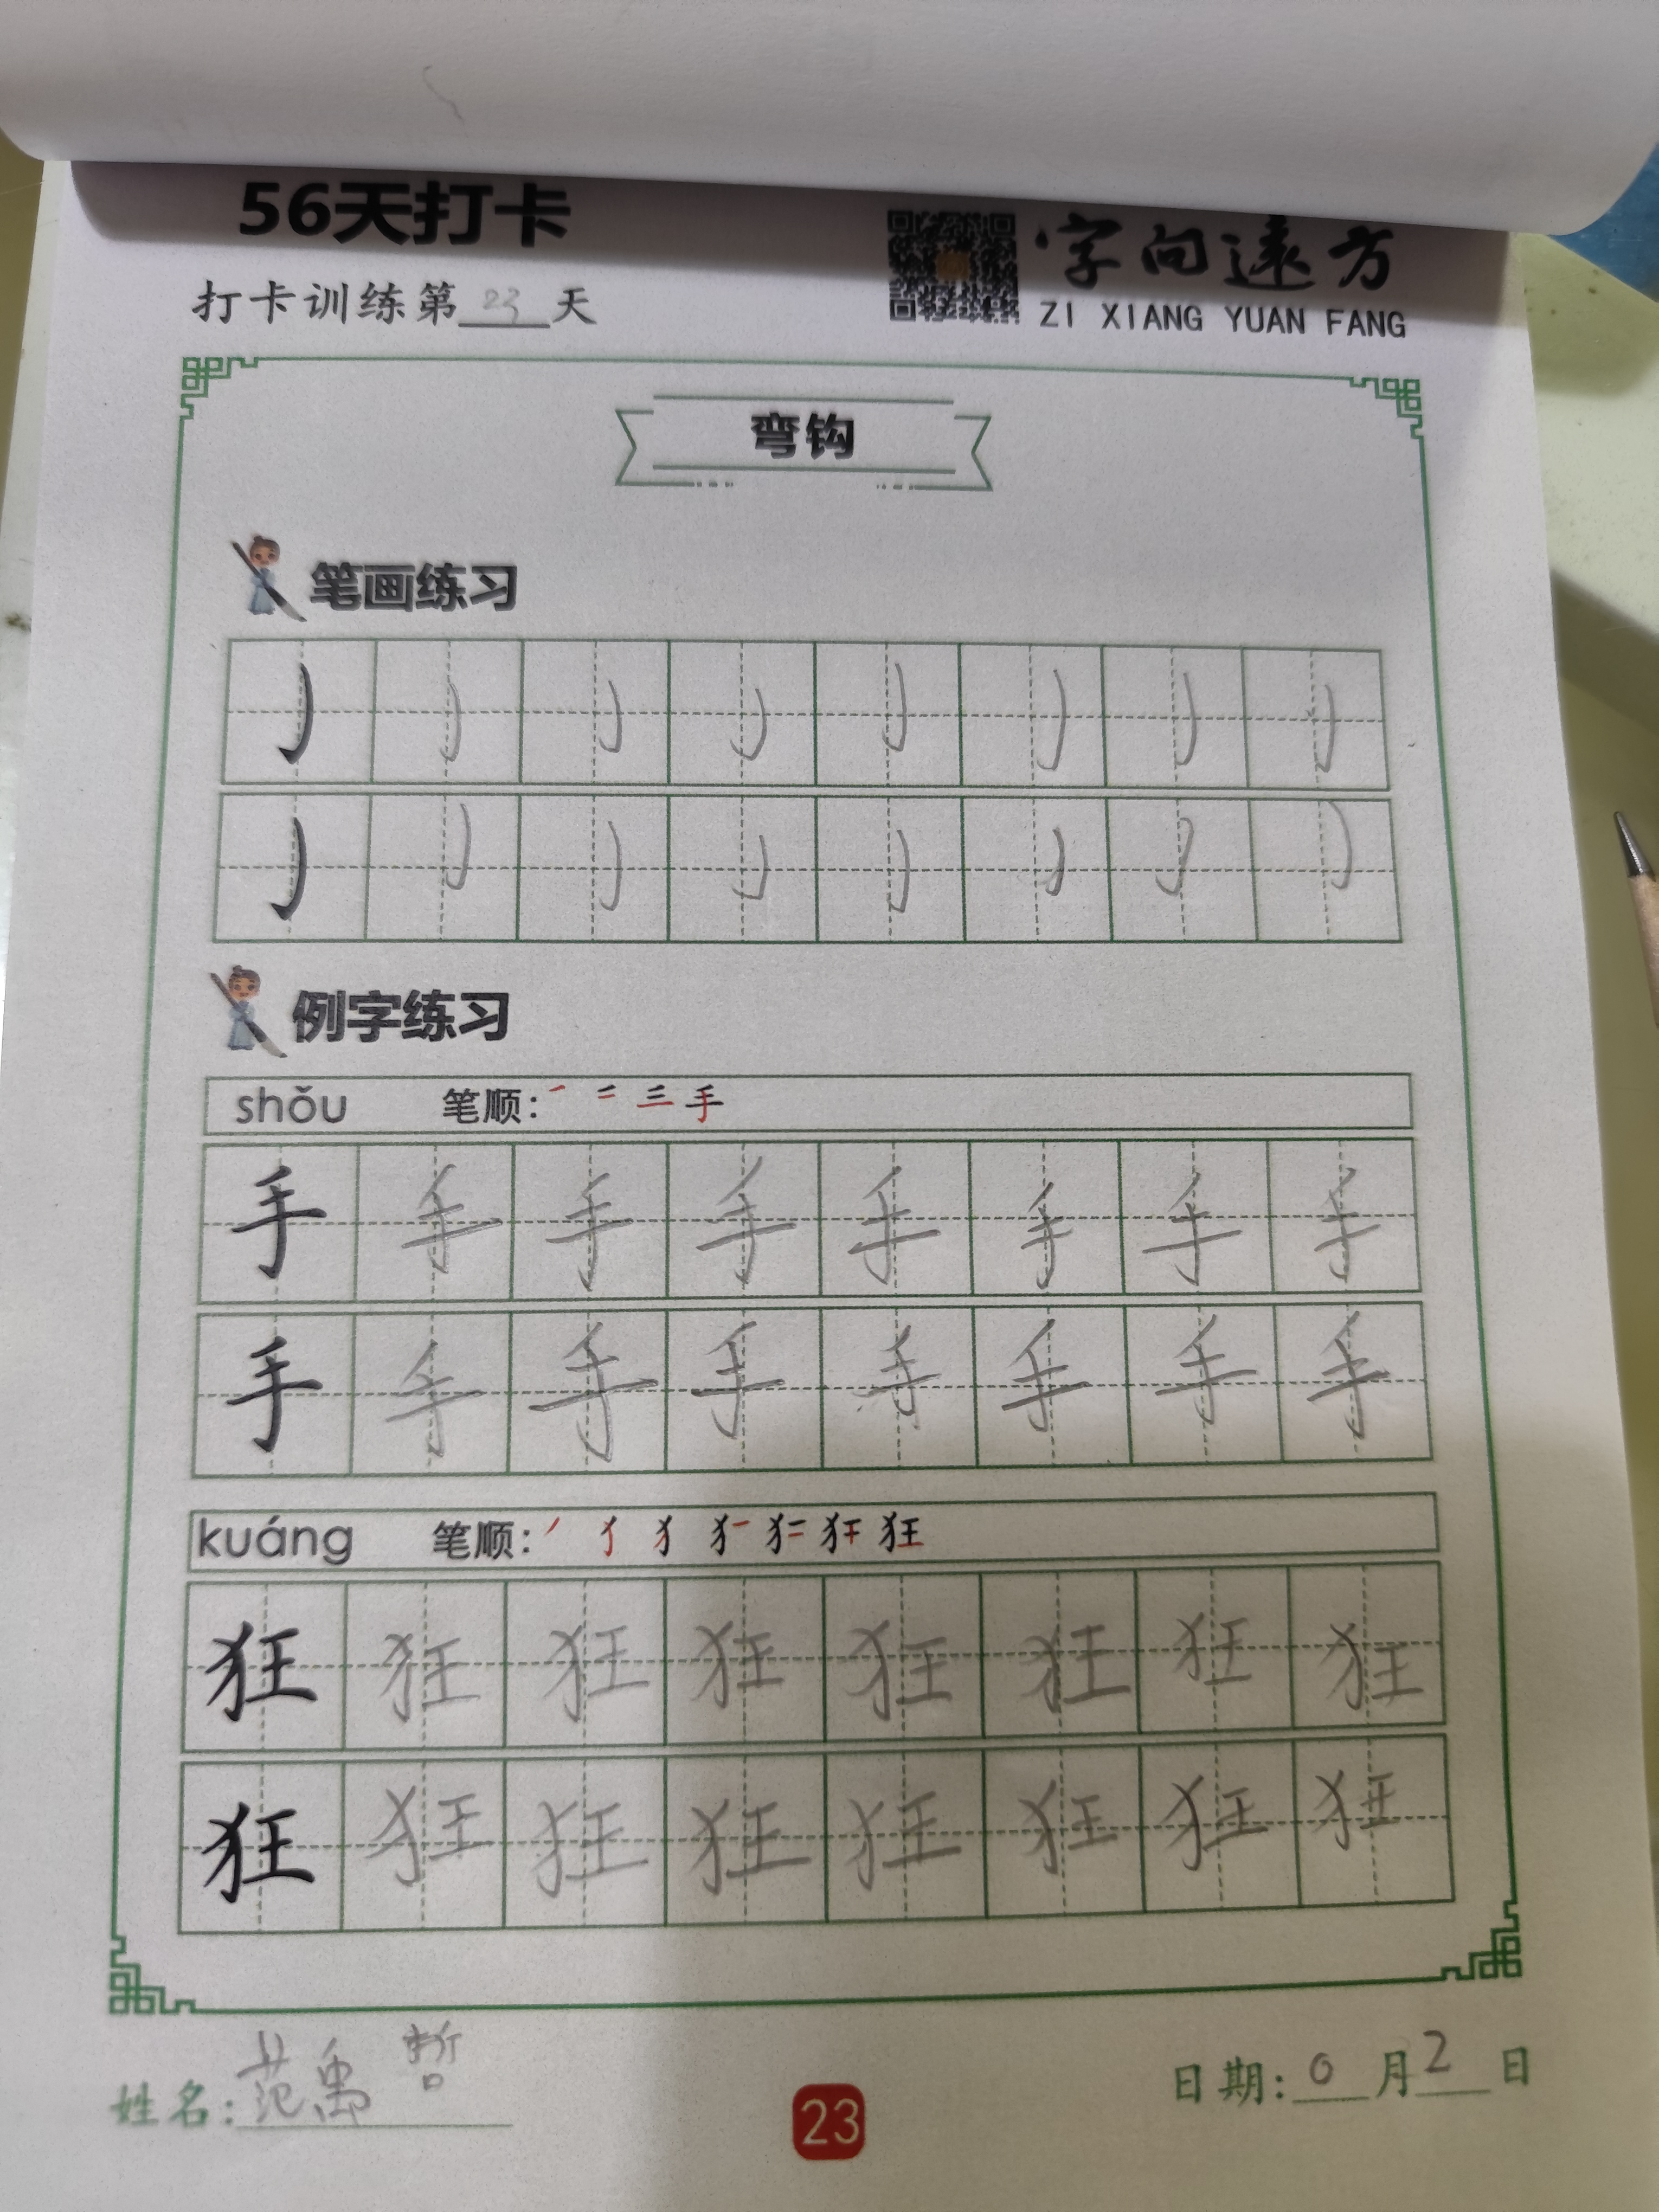 56天打卡
字向远方
打卡训练第23天
ZI XIANG YUAN FANG
弯钩
笔画练习
例字练习
shǒu 笔顺: 手
手 手 手 手 手 手 手 手
手 手 手 手 手 手 手 手
kuáng 笔顺: 狂
狂 狂 狂 狂 狂 狂 狂 狂
狂 狂 狂 狂 狂 狂 狂 狂
姓名: 范禹哲
日期: 0月2日
23